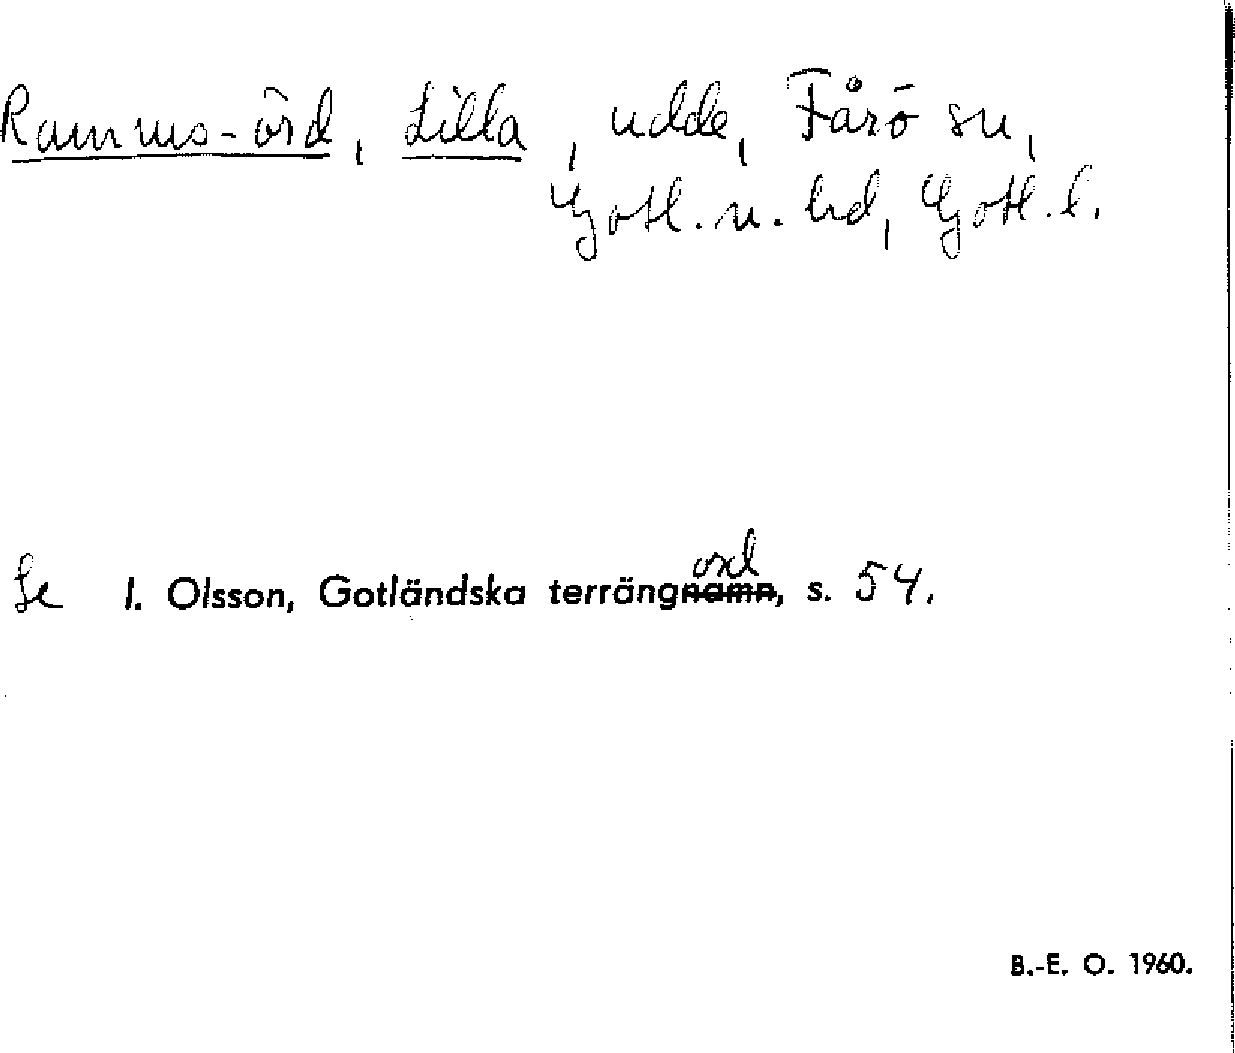 Rammo-örd, Lilla, udde, Fårö sn,
Gotl. n. hd, Gotl. l.
ord
Se I. Olsson, Gotländska terrängnamn, s. 54.
B.-E. O. 1960.